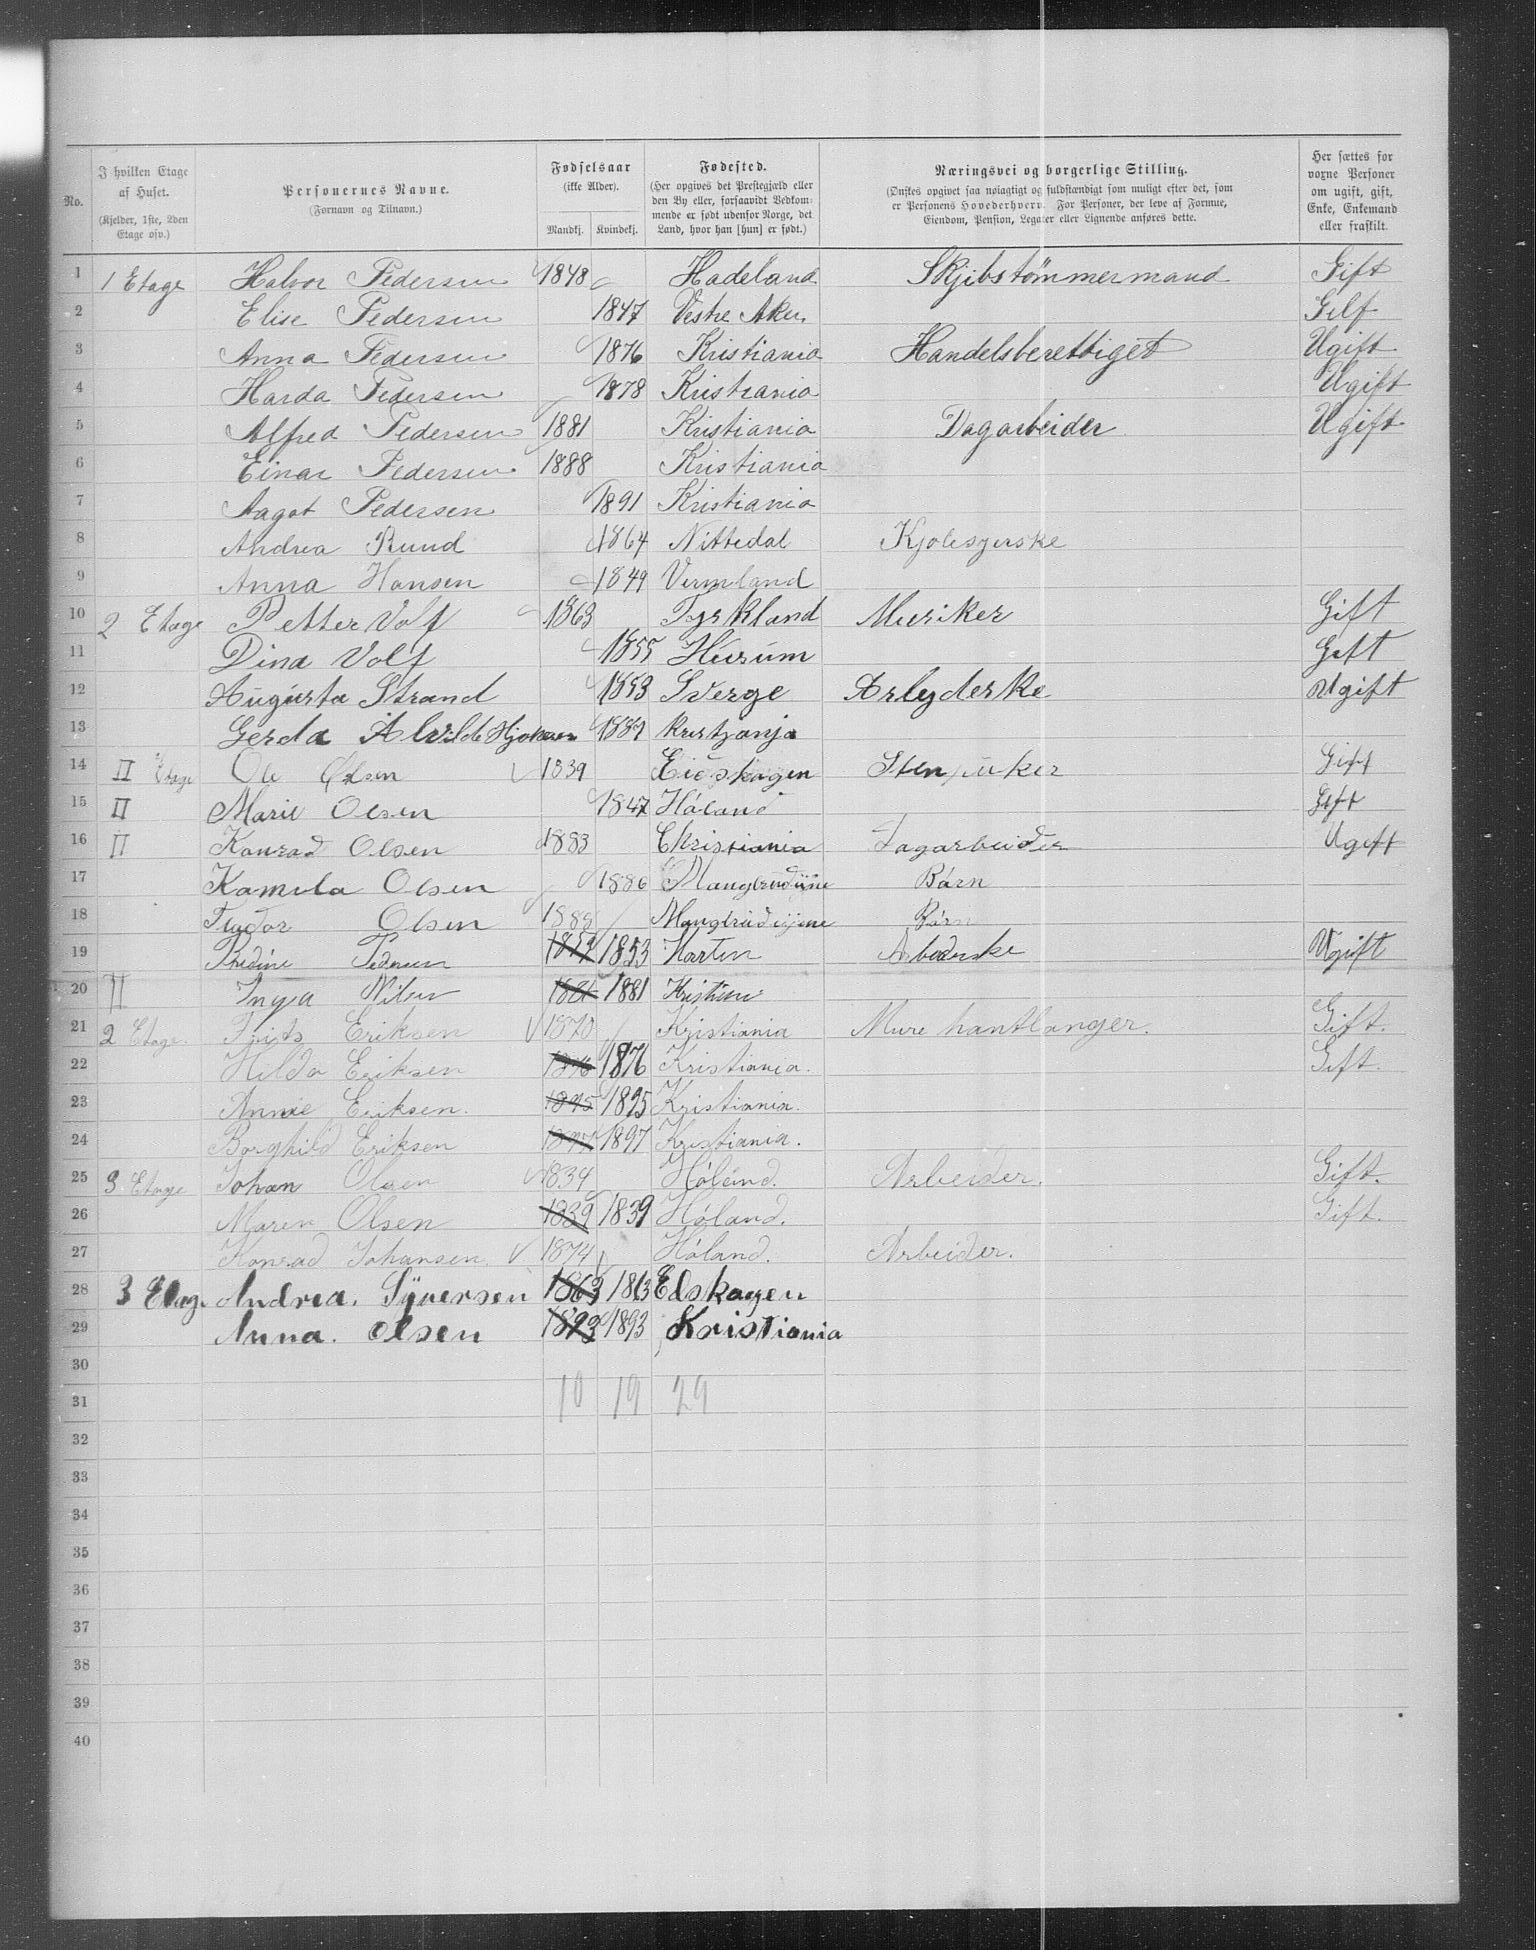 No.
I hvilken Etage af Huset.
(Kjelder, 1ste, 2den Etage osv.)
Personernes Navne.
(Fornavn og Tilnavn.)
Fødselsaar
(ikke Alder).
Mandkj. Kvindekj.
Fødested.
(Her opgives det Prestegjæld eller
den By eller, forsaavidt Vedkom-
mende er født udenfor Norge, det
Land, hvor han [hun] er født.)
Næringsvei og borgerlige Stilling.
(Ønskes opgivet saa nøiagtigt og fuldstændigt som muligt efter det, som
er Personens Hovederhverv. For Personer, der leve af Formue,
Eiendom, Pension, Legater eller Lignende anføres dette.
Her sættes for
voxne Personer
om ugift, gift,
Enke, Enkemand
eller fraskilt.
1 1 Etage Halvor Pedersen 1848 Hadeland Skjibstömmermand Gift
2 Elise Pedersen 1847 Vestre Aker Gift
3 Anna Pedersen 1876 Kristiania Handelsberettiget Ugift
4 Harda Pedersen 1878 Kristiania Ugift
5 Alfred Pedersen 1881 Kristiania Dagarbeider Ugift
6 Einar Pedersen 1888 Kristiania
7 Aagot Pedersen 1891 Kristiania
8 Andrea Rund 1864 Nittedal Kjolesyerske
9 Anna Hansen 1849 Vermland
10 2 Etage Petter Volf 1863 Tyrkland Musiker Gift
11 Dina Volf 1855 Hurum Gift
12 Augusta Strand 1853 Sverge Arbyderske Ugift
13 Gerda Alvilde 1889 Kristjanja
14 II Etage Ole Olsen 1839 Eidskogen Stenpuker Gift
15 II Marie Olsen 1847 Höland Gift
16 II Konrad Olsen 1883 Christiania Dagarbeider Ugift
17 Kamila Olsen 1886 Manglerudsjine Bárn
18 Tudor Olsen 1889 Manglerudsjine Bárn
19 Pedersen 1853 1853 Ugift
20 II Inga Nilsen 1881 1881
21 2 Etage. Frits Eriksen 1870 Kristiania Mure hantlanger. Gift.
22 Hilda Eriksen 1876 1876 Kristiania. Gift.
23 Annie Eriksen. 1895 1895 Kristiania.
24 Borghild Eriksen 1897 1897 Kristiania.
25 3 Etage Johan Olsen 1834 Höland. Arbeider. Gift.
26 Maren Olsen 1839 1839 Höland. Gift.
27 Konrad Johansen 1874 Höland. Arbeider.
28 3 Etage Andrea. Syversen 1863 1863 Edskogen
29 Anna. Olsen 1893 1893 Kristiania
30
31 10 19 29
32
33
34
35
36
37
38
39
40